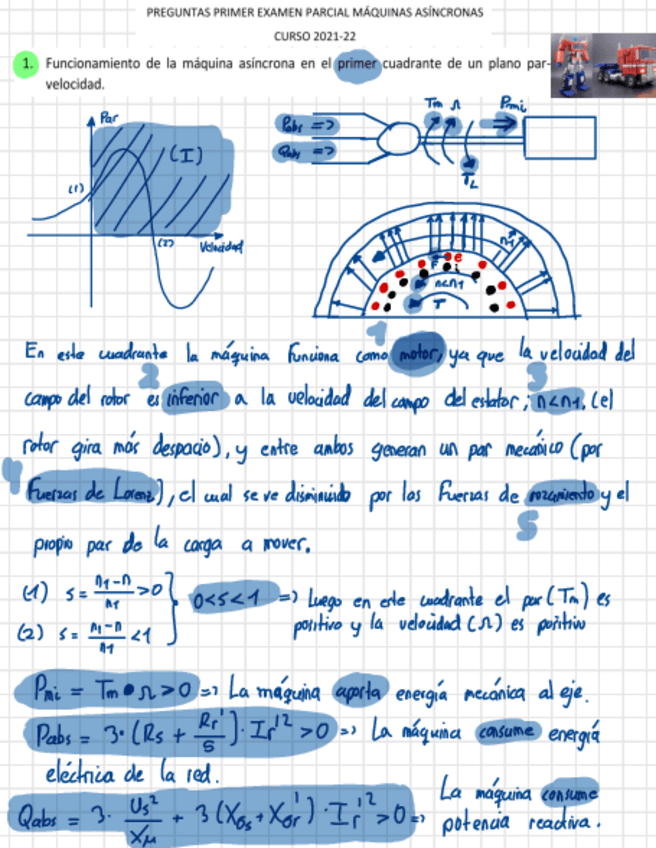 PREGUNTAS PRIMER EXAMEN PARCIAL MÁQUINAS ASÍNCRONAS
CURSO 2021-22
1. Funcionamiento de la máquina asíncrona en el primer cuadrante de un plano par-
velocidad.
Par
(I)
(1)
(2)
Velocidad
Pabs =>
Qabs =>
Tm Ω Pmi
TL
n1
F e
i
n<n1
T
1
En este cuadrante la máquina funciona como motor, ya que la velocidad del
2 3
campo del rotor es inferior a la velocidad del campo del estator; n<n1, (el
rotor gira más despacio), y entre ambos generan un par mecánico (por
4
Fuerzas de Lorenz), el cual se ve disminuido por las Fuerzas de rozamiento y el
5
propio par de la carga a mover.
(1) s = (n1-n)/n1 >0
(2) s = (n1-n)/n1 <1
0<s<1 => Luego en este cuadrante el par (Tm) es
positivo y la velocidad (Ω) es positiva
Pmi = Tm • Ω > 0 => La máquina aporta energía mecánica al eje.
Pabs = 3·(Rs + Rr'/s)·Ir'² > 0 => La máquina consume energía
eléctrica de la red.
Qabs = 3· Us²/Xμ + 3(Xσs + Xσr')·Ir'² > 0 => La máquina consume
potencia reactiva.